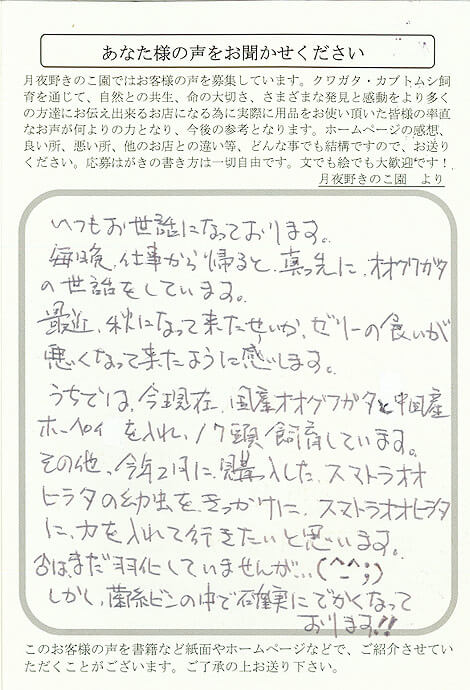 あなた様の声をお聞かせください
月夜野きのこ園ではお客様の声を募集しています。クワガタ・カブトムシ飼
育を通じて、自然との共生、命の大切さ、さまざまな発見と感動をより多く
の方達にお伝え出来るお店になる為に実際に用品をお使い頂いた皆様の率直
なお声が何よりの力となり、今後の参考となります。ホームページの感想、
良い所、悪い所、他のお店との違い等、どんな事でも結構ですので、お送り
ください。応募はがきの書き方は一切自由です。文でも絵でも大歓迎です！
月夜野きのこ園　より
いつもお世話になっております。
毎晩、仕事から帰ると、真っ先に、オオクワガタ
の世話をしています。
最近、秋になって来たせいか、ゼリーの食いが
悪くなって来たように感じします。
うちでは、今現在、国産オオクワガタと中国産
ホーペイ を入れ、17頭飼育しています。
その他、今年2月に、購入した、スマトラオオ
ヒラタの幼虫を、きっかけに、スマトラオオヒラタ
に、力を入れて行きたいと思います。
まだ羽化していませんが…(^_^;)
しかし、菌糸ビンの中で確実にでかくなって
おります!!
このお客様の声を書籍など紙面やホームページなどで、ご紹介させていた
だくことがございます。ご了承の上お送り下さい。